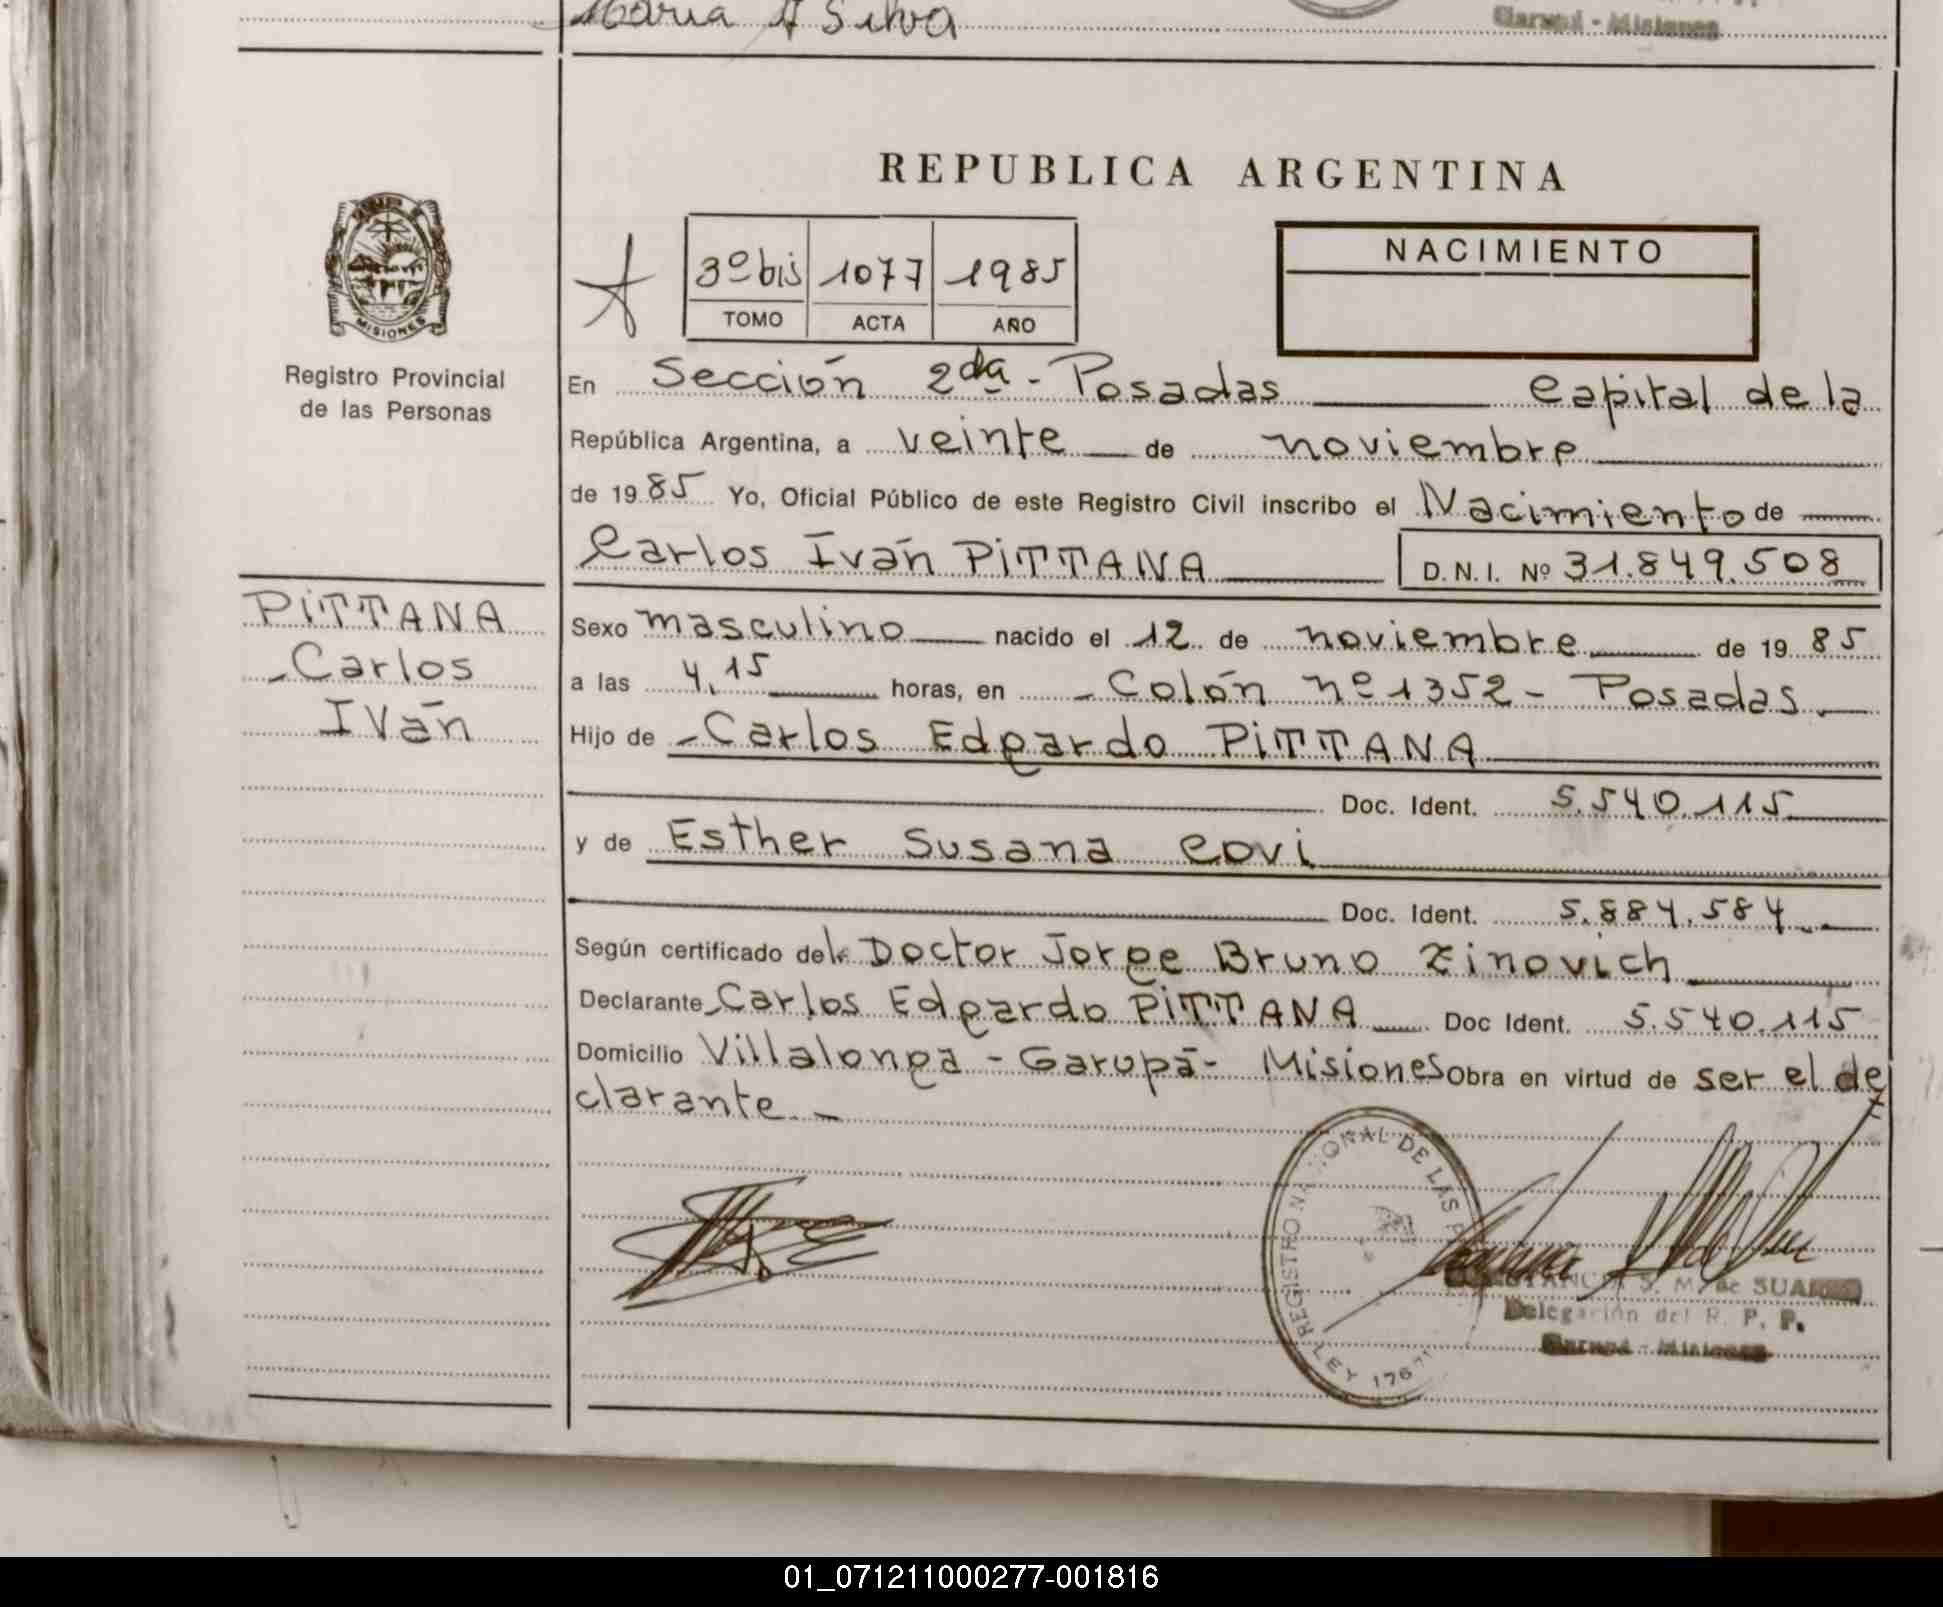 Maria A Silva
Garupá - Misiones
REPUBLICA ARGENTINA
MISIONES
Registro Provincial
de las Personas
3º bis 1077 1985
TOMO ACTA AÑO
NACIMIENTO
En Sección 2da - Posadas Capital de la
República Argentina, a veinte de noviembre
de 1985 Yo, Oficial Público de este Registro Civil inscribo el Nacimiento de
Carlos Iván PITTANA D.N.I. Nº 31.849.508
PITTANA
Carlos
Iván
Sexo masculino nacido el 12 de noviembre de 1985
a las 4,15 horas, en - Colón nº 1352 - Posadas
Hijo de - Carlos Edgardo PITTANA
Doc. Ident. 5.540.115
y de Esther Susana Covi
Doc. Ident. 5.884.584
Según certificado del Doctor Jorge Bruno Zinovich
Declarante Carlos Edgardo PITTANA Doc Ident. 5.540.115
Domicilio Villalonga - Garupá - Misiones Obra en virtud de ser el de
clarante. -
REGISTRO NACIONAL DE LAS P
LEY 1767
S. M. de SUA
Delegación del R. P. P.
Garupá - Misiones
01_071211000277-001816